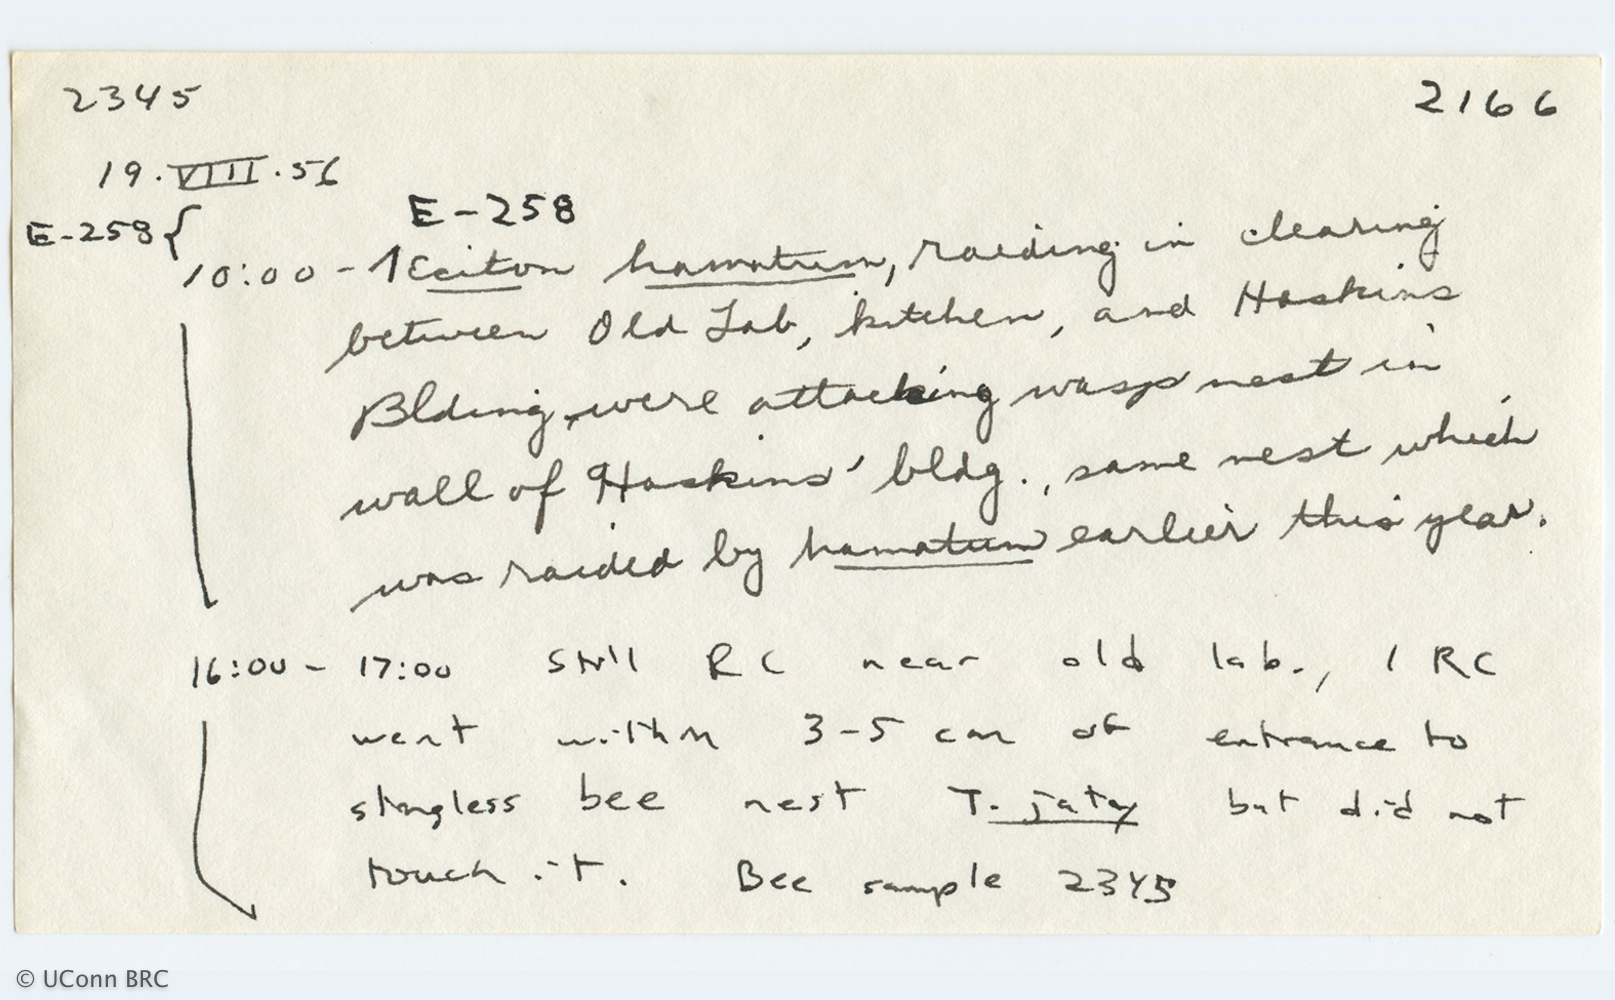 2345
2166
19.VIII.56
E-258
E-258 {
10:00 - 1 Eciton hamatum, raiding in clearing
between Old Lab, kitchen, and Hoskins
Blding, were attacking wasp nest in
wall of Hoskins' bldg., same nest which
was raided by hamatum earlier this year.
16:00 - 17:00 Still RC near old lab., 1 RC
went within 3-5 cm of entrance to
stingless bee nest T. jaty but did not
touch it. Bee sample 2345
© UConn BRC